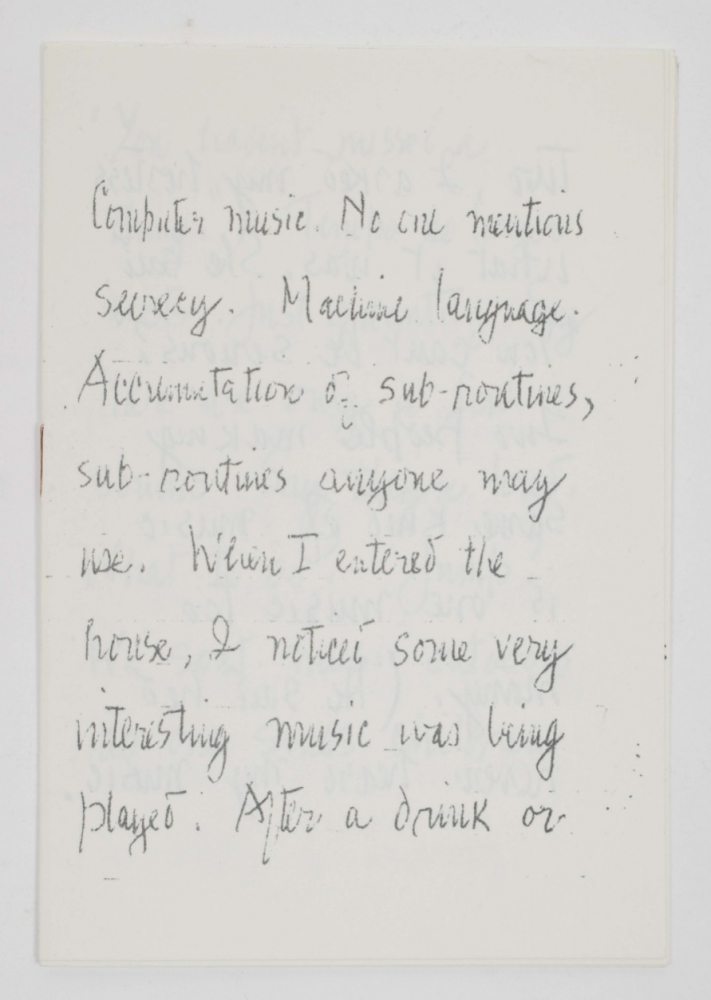 Computer music. No one mentions
secrecy. Machine language.
Accumulation of sub-routines,
sub-routines anyone may
use. When I entered the
house, I noticed some very
interesting music was being
played. After a drink or